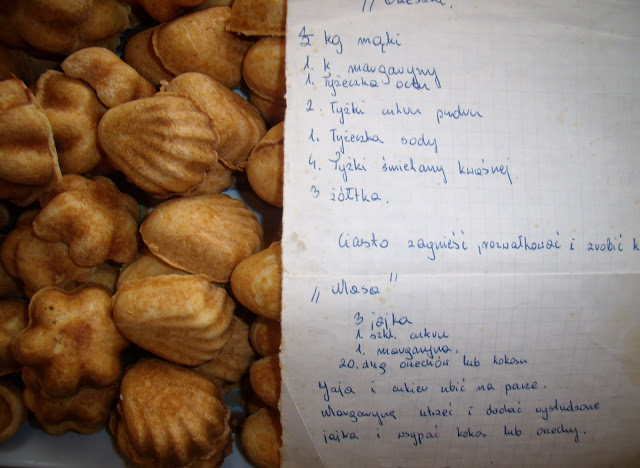 „Orzeszki"
1/2 kg mąki
1 k margaryny
1. łyżeczka octu
2. łyżki cukru pudru
1. łyżeczka sody
4. łyżki śmietany kwaśnej.
3 żółtka.
Ciasto zagnieść, rozwałkować i zrobić k
„Masa"
3 jajka
1 szkl. cukru
1. margaryna.
20. dkg orzechów lub kokosu
Jaja i cukier ubić na parze.
Margarynę utrzeć i dodać wystudzone
jajka i wsypać kokos lub orzechy.